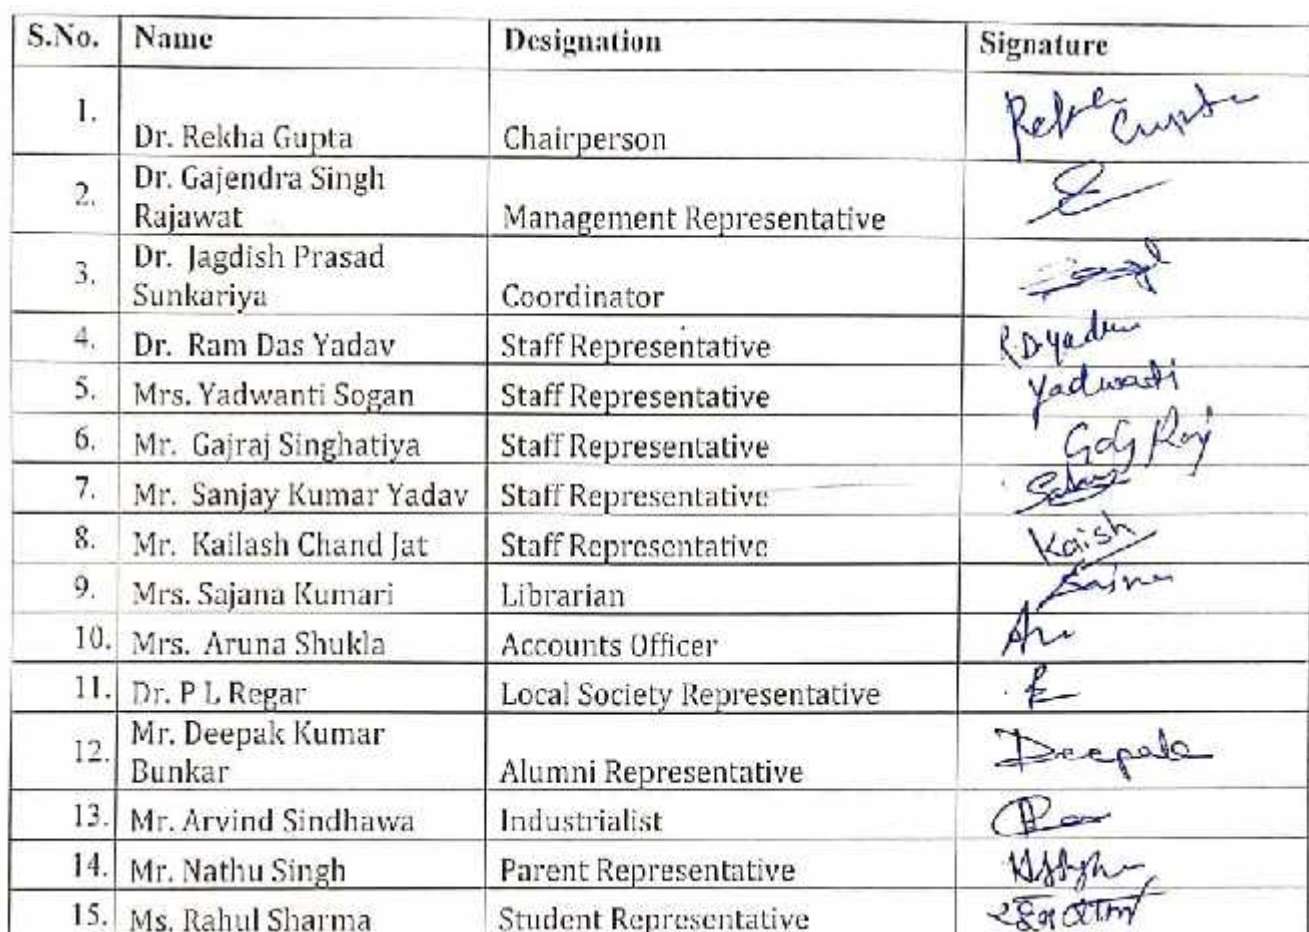 S.No. Name Designation Signature
1. Dr. Rekha Gupta Chairperson Rekha Gupta
2. Dr. Gajendra Singh
Rajawat Management Representative
3. Dr. Jagdish Prasad
Sunkariya Coordinator
4. Dr. Ram Das Yadav Staff Representative RDYadav
5. Mrs. Yadwanti Sogan Staff Representative Yadwanti
6. Mr. Gajraj Singhatiya Staff Representative
7. Mr. Sanjay Kumar Yadav Staff Representative
8. Mr. Kailash Chand Jat Staff Representative Kaish
9. Mrs. Sajana Kumari Librarian
10. Mrs. Aruna Shukla Accounts Officer
11. Dr. P L Regar Local Society Representative
12. Mr. Deepak Kumar
Bunkar Alumni Representative Deepak
13. Mr. Arvind Sindhawa Industrialist
14. Mr. Nathu Singh Parent Representative
15. Ms. Rahul Sharma Student Representative